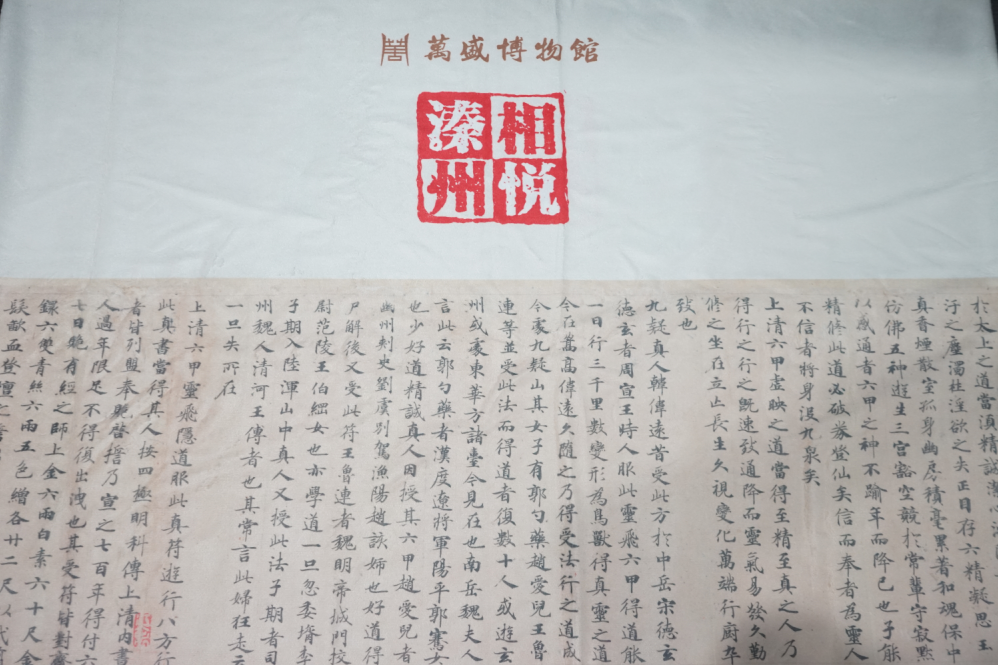 萬盛博物館
相悦
溱州
於太上之道當湏精誠潔心
汙之塵濁杜淫欲之失正目存六精凝思玉
真香煙散室孤身幽房積毫累著和魂保中
仿佛五神遊生三宮豁空競於常輩守寂默
以感通者六甲之神不踰年而降已也子能
精修此道必破券登仙矣信而奉者為靈人
不信者將身沒九泉矣
上清六甲虛映之道當得至精至真之人乃
得行之行之既速致通降而靈氣易發久勤
修之坐在立亡長生久視變化萬端行廚卒
致也
九疑真人韓偉遠昔受此方於中岳宋德玄
德玄者周宣王時人服此靈飛六甲得道能
一日行三千里數變形為鳥獸得真靈之道
今在嵩高偉遠久隨之乃得受法行之道成
今處九疑山其女子有郭勺藥趙愛兒王魯
連等並受此法而得道者復數十人或遊玄
州或處東華方諸臺今見在也南岳魏夫人
言此云郭勺藥者漢度遼將軍陽平郭騫女
也少好道精誠真人因授其六甲趙愛兒者
幽州刺史劉虞別駕漁陽趙該姉也好道得
尸解後又受此符王魯連者魏明帝城門校
尉范陵王伯綱女也亦學道一旦忽委壻李
子期入陸渾山中真人又授此法子期者司
州魏人清河王傳者也其常言此婦狂走云
一旦失所在
上清六甲靈飛隱道服此真符遊行八方行
此真書當得其人按四極明科傳上清內書
者皆列盟奉贐啓誓乃宣之七百年得付六
人過年限足不得復出洩也其受符皆對齋
七日賭有經之師上金六兩白素六十尺金
鐶六雙青絲六兩五色繒各廿二尺以代
髮歃血登壇之